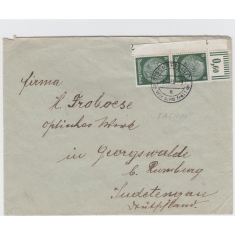 Firma
H. Froboese
optisches Werk
in Georgswalde
b. Rumburg
Sudetengau
Deutschland